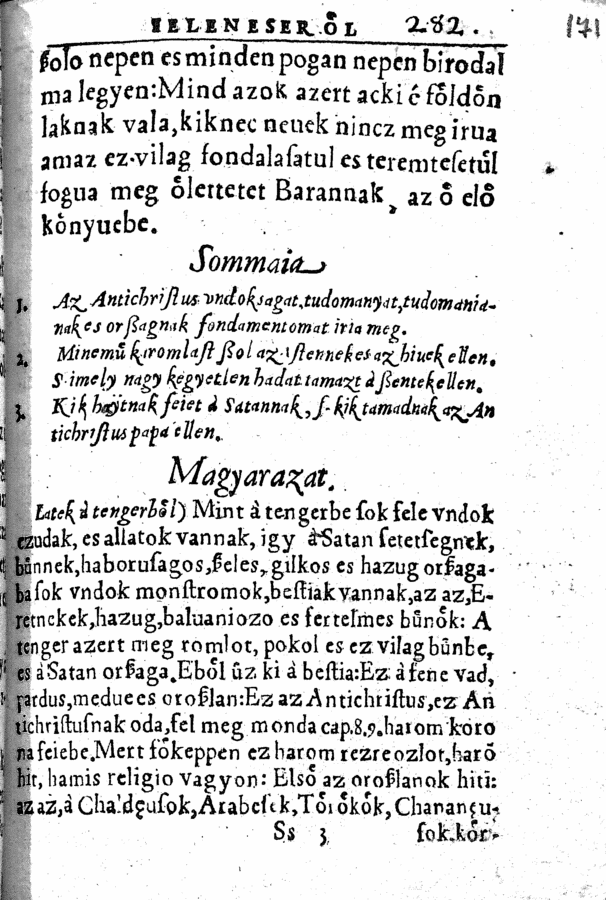 IELENESER ȮL 282. 171
ſolo nepen es minden pogan nepen birodal
ma legyen: Mind azok azert acki é fỏldỏn
laknak vala, kiknec neuek nincz meg irua
amaz ez-vilag fondalaſatul es teremteſetủl
fogua meg ỏlettetet Barannak, az ỏ elỏ
kỏnyuebe.
Sommaia
1. Az Antichriſtus vndokſagat, tudomanyat, tudomania-
nak es orßagnak fondamentomat iria meg.
2. Minemủ karomlaſt ßol az iſtennek es az hiuek ellen.
S. imely nagy kegyetlen hadat tamazt à ßentek ellen.
3. Kik haÿtnak feiet à Satannak, ſ- kik tamadnak az An
tichriſtus papa ellen.
Magyarazat.
Latek à tengerbỏl) Mint à tengerbe ſok fele vndok
czudak, es allatok vannak, igy à Satan ſetetſegnek,
bủnnek, haboruſagos, ßeles, gilkos es hazug orßaga-
ba ſok vndok monſtromok, beſtiak vannak, az az, E-
retnekek, hazug, baluaniozo es fertelmes bủnỏk: A
tenger azert meg romlot, pokol es ez vilag bủnbe,
es à Satan orßaga. Ebỏl ủz ki à beſtia: Ez à fene vad,
pardus, medue es oroßlan: Ez az Antichriſtus, ez An
tichriſtuſnak oda, fel meg monda cap. 8. 9. harom koro
na feiebe. Mert fỏkeppen ez harom rezre ozlot, harõ
hit, hamis religio vagyon: Elsỏ az oroßlanok hiti:
az az, à Chaldęuſok, Arabeſek, Tỏrỏkỏk, Chananęu-
Ss 3 ſok. kỏr-